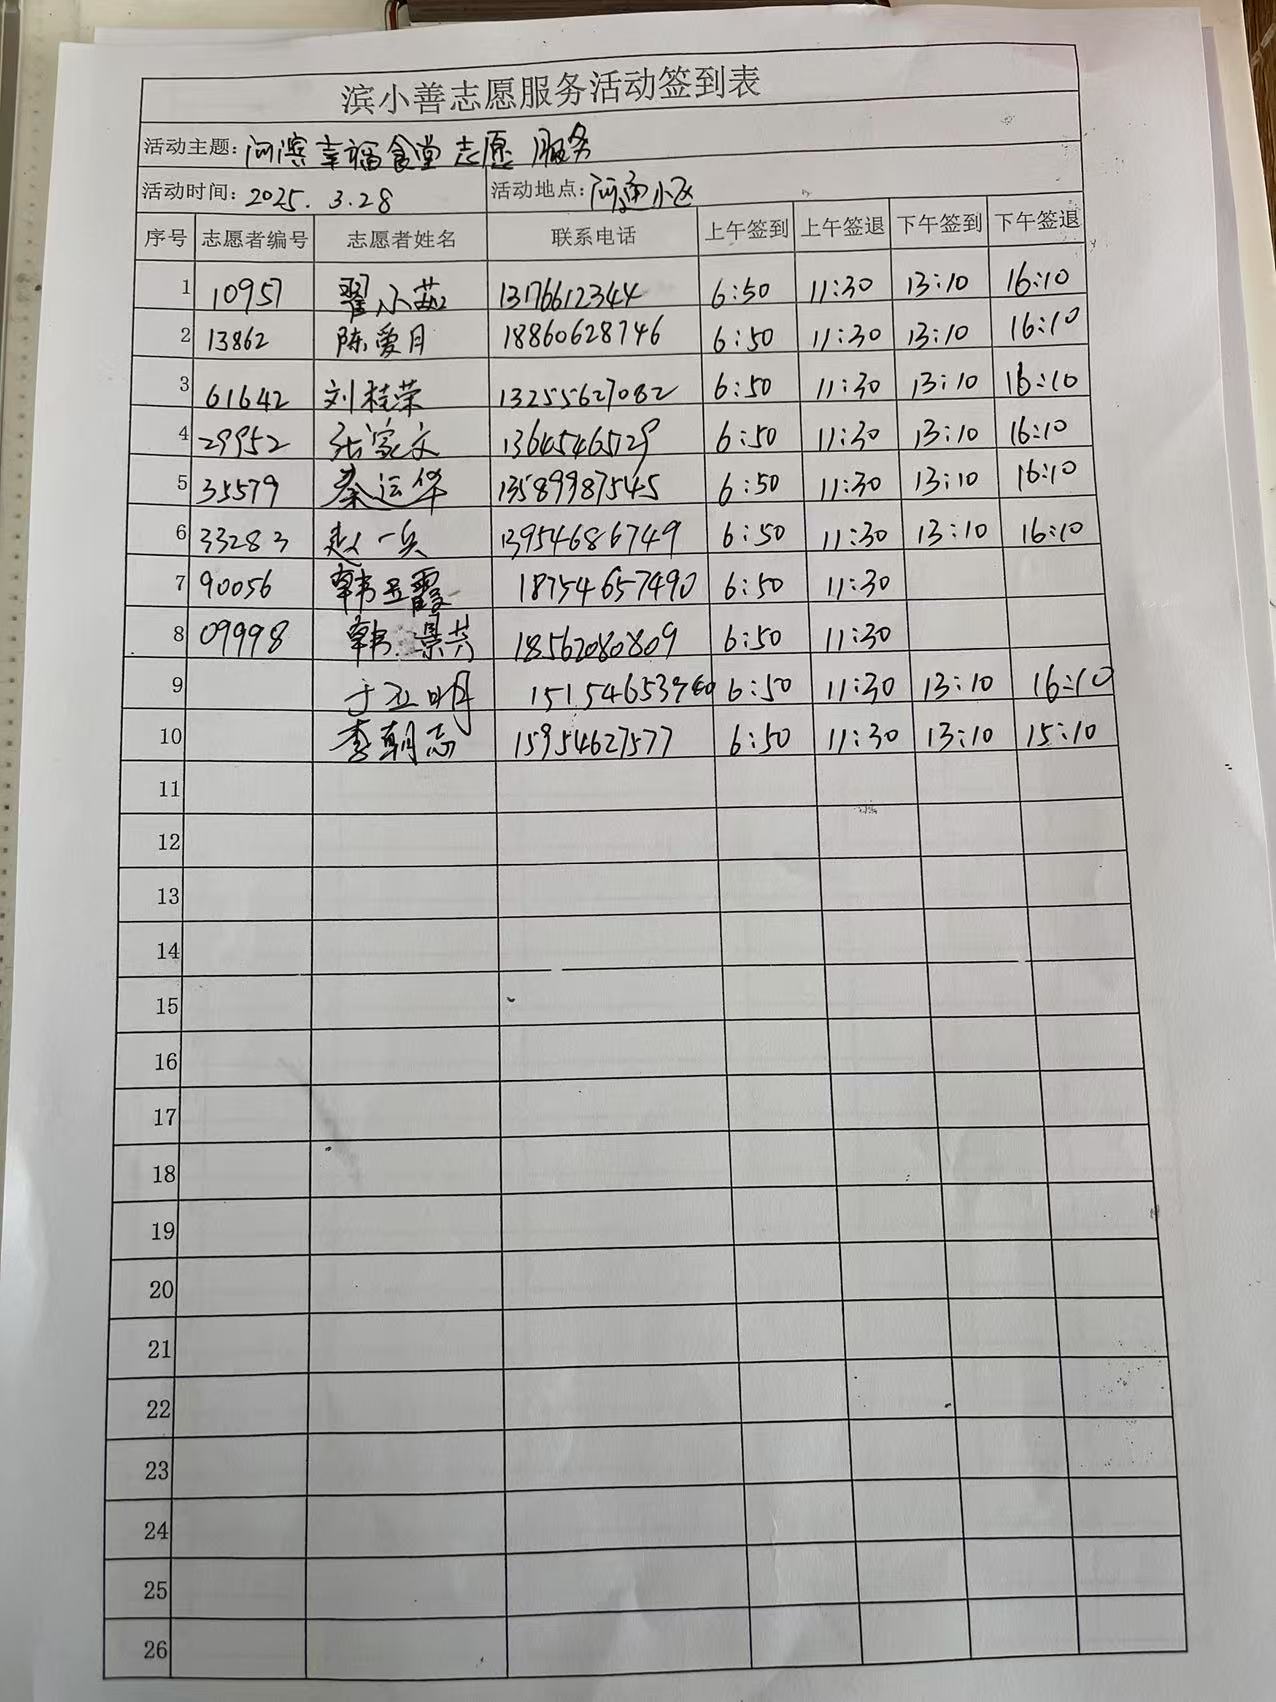 滨小善志愿服务活动签到表
活动主题: 河滨幸福食堂志愿服务
活动时间: 2025.3.28 活动地点: 河通小区
序号 志愿者编号 志愿者姓名 联系电话 上午签到 上午签退 下午签到 下午签退
1 10957 翟小茹 13176612344 6:50 11:30 13:10 16:10
2 13862 陈爱月 18860628746 6:50 11:30 13:10 16:10
3 61642 刘桂荣 13255627082 6:50 11:30 13:10 16:10
4 29952 张家文 1364546529 6:50 11:30 13:10 16:10
5 35579 秦运华 13589987545 6:50 11:30 13:10 16:10
6 33283 赵一兵 13954686749 6:50 11:30 13:10 16:10
7 90056 韩玉霞 18754657490 6:50 11:30
8 09998 韩景芸 18562080809 6:50 11:30
9 于亚明 6:50 11:30 13:10 16:10
10 李朝志 15954627577 6:50 11:30 13:10 15:10
11
12
13
14
15
16
17
18
19
20
21
22
23
24
25
26